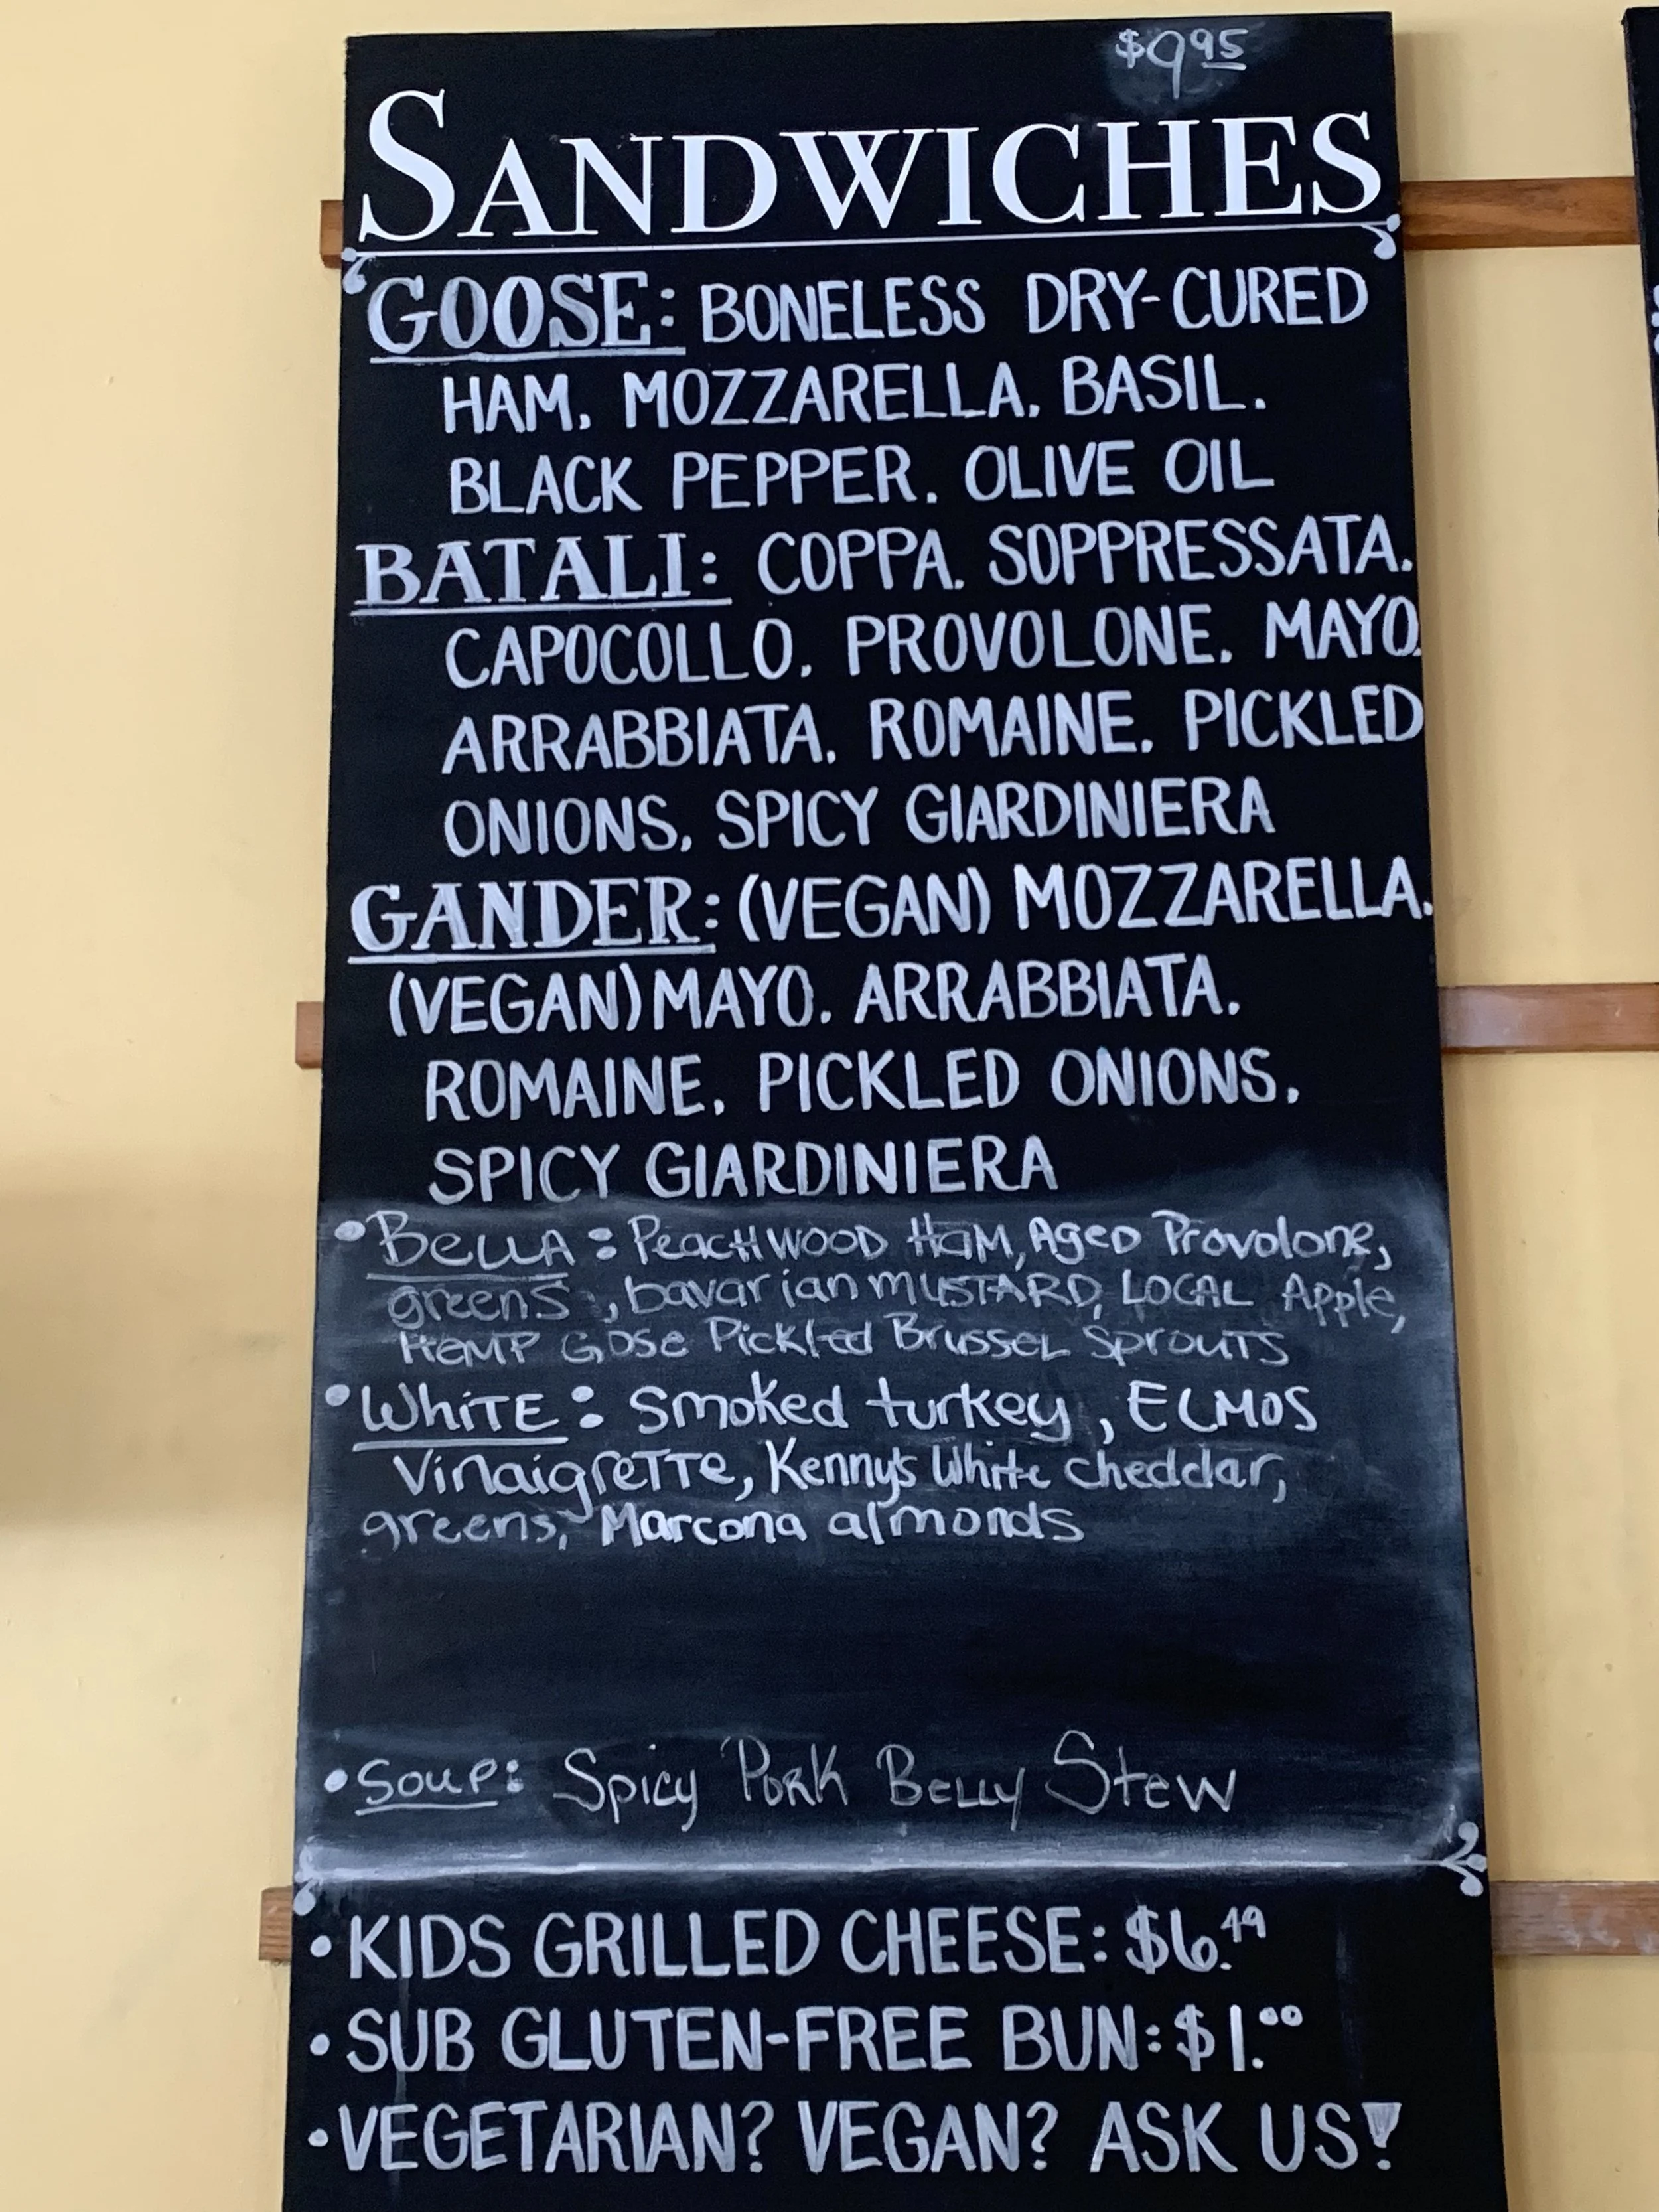 $9.95
SANDWICHES
GOOSE: BONELESS DRY-CURED
HAM, MOZZARELLA, BASIL,
BLACK PEPPER, OLIVE OIL
BATALI: COPPA, SOPPRESSATA,
CAPOCOLLO, PROVOLONE, MAYO,
ARRABBIATA, ROMAINE, PICKLED
ONIONS, SPICY GIARDINIERA
GANDER: (VEGAN) MOZZARELLA,
(VEGAN) MAYO, ARRABBIATA,
ROMAINE, PICKLED ONIONS,
SPICY GIARDINIERA
• BELLA: PeacHWOOD HaM, AgeD Provolone,
greens, bavarian MUSTARD, LOCAL Apple,
HEMP GOSE Pickled Brussel Sprouts
• WhiTE: Smoked turkey, ELMOS
VinaigreTTe, Kenny's White cheddar,
greens, Marcona almonds
• Soup: Spicy Pork Belly Stew
• KIDS GRILLED CHEESE: $6.49
• SUB GLUTEN-FREE BUN: $1.00
• VEGETARIAN? VEGAN? ASK US!